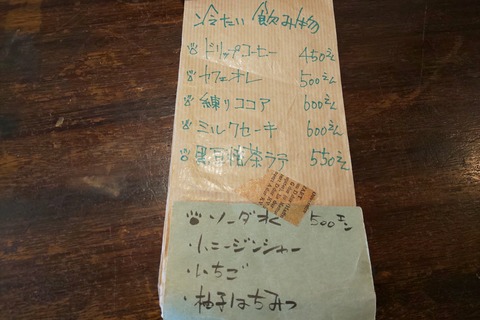 冷たい飲み物
ドリップコーヒー 450えん
カフェオレ 500えん
練りココア 600えん
ミルクセーキ 600えん
黒豆焙茶ラテ 550えん
ソーダ水 500エン
・ハニージンジャー
・いちご
・柚子はちみつ